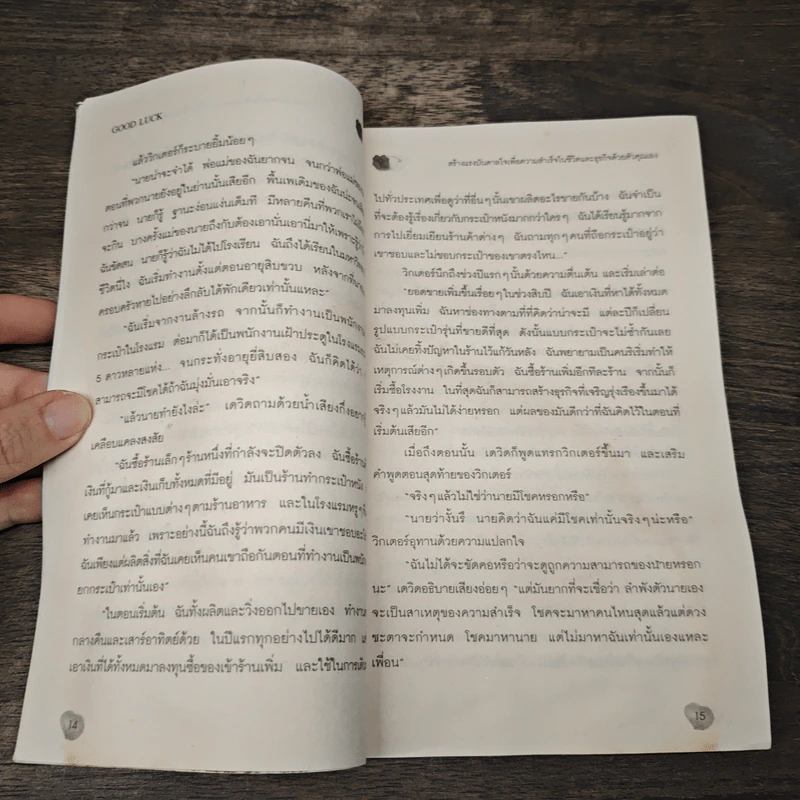 GOOD LUCK
แล้ววิกเตอร์ก็ระบายยิ้มน้อยๆ
"นายน่าจะจำได้ พ่อแม่ของฉันยากจน จนกว่าพ่อแม่ของ
ตอนที่พวกนายยังอยู่ในย่านนั้นเสียอีก พื้นเพเดิมของฉันน่ะ
กว่าจน นายก็รู้ ฐานะง่อนแง่นเต็มที มีหลายคืนที่พวกเราไม่มี
จะกิน บางครั้งแม่ของนายถึงกับต้องเอานั่นเอานี่มาให้เพราะรู้ว่า
ฉันขัดสน นายก็รู้ว่าฉันไม่ได้ไปโรงเรียน ฉันถึงได้เรียนในมหาวิทยา
ชีวิตนี่ไง ฉันเริ่มทำงานตั้งแต่ตอนอายุสิบขวบ หลังจากที่นาย
ครอบครัวหายไปอย่างลึกลับได้พักเดียวเท่านั้นแหละ"
"ฉันเริ่มจากงานล้างรถ จากนั้นก็ทำงานเป็นพนักงาน
กระเป๋าในโรงแรม ต่อมาก็ได้เป็นพนักงานเฝ้าประตูในโรงแรม
5 ดาวหลายแห่ง... จนกระทั่งอายุยี่สิบสอง ฉันก็คิดได้ว่า
สามารถจะมีโชคได้ถ้าฉันมุ่งมั่นเอาจริง"
"แล้วนายทำยังไงล่ะ" เดวิดถามด้วยน้ำเสียงกึ่งอยาก
เคลือบแคลงสงสัย
"ฉันซื้อร้านเล็กๆร้านหนึ่งที่กำลังจะปิดตัวลง ฉันซื้อร้าน
เงินที่กู้มาและเงินเก็บทั้งหมดที่มีอยู่ มันเป็นร้านทำกระเป๋าหนัง
เคยเห็นกระเป๋าแบบต่างๆตามร้านอาหาร และในโรงแรมหรูๆที่
ทำงานมาแล้ว เพราะอย่างนี้ฉันถึงรู้ว่าพวกคนมีเงินเขาชอบอะไร
ฉันเพียงแต่ผลิตสิ่งที่ฉันเคยเห็นคนเขาถือกันตอนที่ทำงานเป็นพนัก
ยกกระเป๋าเท่านั้นเอง"
"ในตอนเริ่มต้น ฉันทั้งผลิตและวิ่งออกไปขายเอง ทำงาน
กลางคืนและเสาร์อาทิตย์ด้วย ในปีแรกทุกอย่างไปได้ดีมาก
เอาเงินที่ได้ทั้งหมดมาลงทุนซื้อของเข้าร้านเพิ่ม และใช้ในการเดิน
14
สร้างแรงบันดาลใจเพื่อความสำเร็จในชีวิตและธุรกิจด้วยตัวคุณเอง
ไปทั่วประเทศเพื่อดูว่าที่อื่นๆนั้นเขาผลิตอะไรขายกันบ้าง ฉันจำเป็น
ที่จะต้องรู้เรื่องเกี่ยวกับกระเป๋าหนังมากกว่าใครๆ ฉันได้เรียนรู้มากจาก
การไปเยี่ยมเยียนร้านค้าต่างๆ ฉันถามทุกๆคนที่ถือกระเป๋าอยู่ว่า
เขาชอบและไม่ชอบกระเป๋าของเขาตรงไหน..."
วิกเตอร์นึกถึงช่วงปีแรกๆนั้นด้วยความตื่นเต้น และเริ่มเล่าต่อ
"ยอดขายเพิ่มขึ้นเรื่อยๆในช่วงสิบปี ฉันเอาเงินที่หาได้ทั้งหมด
มาลงทุนเพิ่ม ฉันหาช่องทางตามที่ที่คิดว่าน่าจะมี แต่ละปีก็เปลี่ยน
รูปแบบกระเป๋ารุ่นที่ขายดีที่สุด ดังนั้นแบบกระเป๋าจะไม่ซ้ำกันเลย
ฉันไม่เคยทิ้งปัญหาในร้านไว้แก้วันหลัง ฉันพยายามเป็นคนริเริ่มทำให้
เหตุการณ์ต่างๆเกิดขึ้นรอบตัว ฉันซื้อร้านเพิ่มอีกทีละร้าน จากนั้นก็
เริ่มซื้อโรงงาน ในที่สุดฉันก็สามารถสร้างธุรกิจที่เจริญรุ่งเรืองขึ้นมาได้
จริงๆแล้วมันไม่ได้ง่ายหรอก แต่ผลของมันดีกว่าที่ฉันคิดไว้ในตอนที่
เริ่มต้นเสียอีก"
เมื่อถึงตอนนั้น เดวิดก็พูดแทรกวิกเตอร์ขึ้นมา และเสริม
คำพูดตอนสุดท้ายของวิกเตอร์
"จริงๆแล้วไม่ใช่ว่านายมีโชคหรอกหรือ"
"นายว่างั้นรึ นายคิดว่าฉันแค่มีโชคเท่านั้นจริงๆน่ะหรือ"
วิกเตอร์อุทานด้วยความแปลกใจ
"ฉันไม่ได้จะขัดคอหรือว่าจะดูถูกความสามารถของนายหรอก
นะ" เดวิดอธิบายเสียงอ่อยๆ "แต่มันยากที่จะเชื่อว่า ลำพังตัวนายเอง
จะเป็นสาเหตุของความสำเร็จ โชคจะมาหาคนไหนสุดแล้วแต่ดวง
ชะตาจะกำหนด โชคมาหานาย แต่ไม่มาหาฉันเท่านั้นเองแหละ
เพื่อน"
15